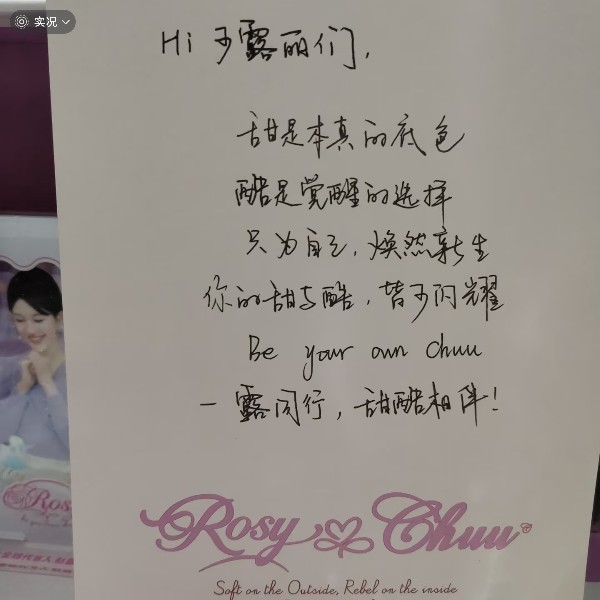 实况
Hi 予露丽们,
甜是本真的底色
酷是觉醒的选择
只为自己,焕然新生
你的甜与酷,皆可闪耀
Be your own chuu
一露同行,甜酷相伴!
Rosy Chuu
Soft on the Outside, Rebel on the inside
Ros